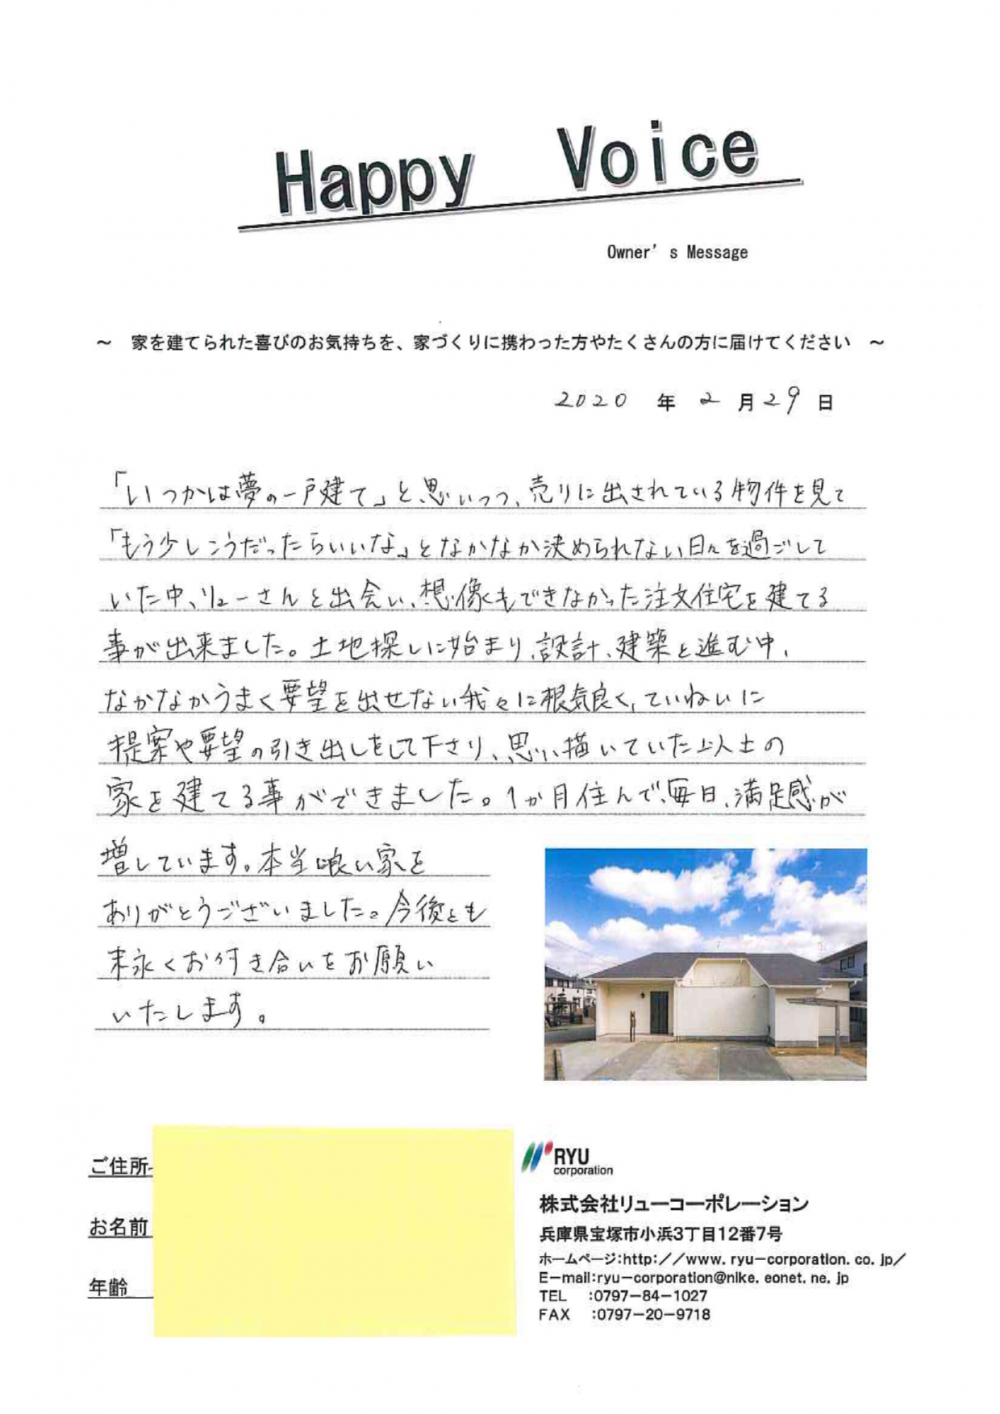 Happy Voice
Owner's Message
～ 家を建てられた喜びのお気持ちを、家づくりに携わった方やたくさんの方に届けてください ～
2020 年 2 月 29 日
「いつかは夢の一戸建て」と、思いつつ、売りに出されている物件を見て
「もう少しこうだったらいいな」となかなか決められない日々を過ごして
いた中、リューさんと出会い、想像もできなかった注文住宅を建てる
事が出来ました。土地探しに始まり、設計、建築と進む中、
なかなかうまく要望を出せない我々に根気良く、ていねいに
提案や要望の引き出しをして下さり、思い描いていた以上の
家を建てる事ができました。1か月住んで、毎日、満足感が
増しています。本当 い家を
ありがとうございました。今後とも
末永くお付き合いをお願い
いたします。
ご住所
お名前
年齢
RYU
corporation
株式会社リューコーポレーション
兵庫県宝塚市小浜3丁目12番7号
ホームページ:http://www.ryu-corporation.co.jp/
E-mail:ryu-corporation@nike.eonet.ne.jp
TEL :0797-84-1027
FAX :0797-20-9718